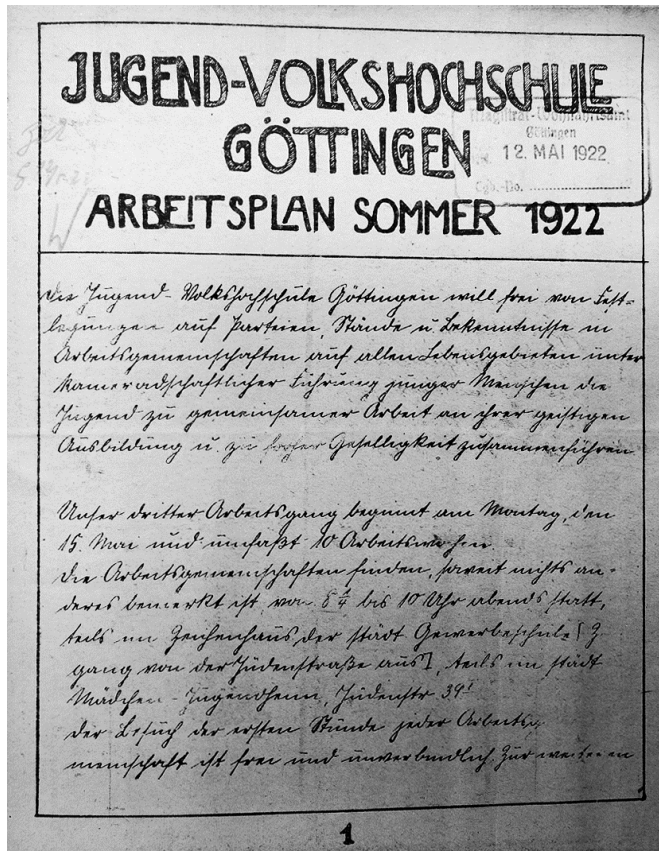 JUGEND-VOLKSHOCHSCHULE
GÖTTINGEN
ARBEITSPLAN SOMMER 1922
Magistrat-Wohlfahrtsamt
Göttingen
12. MAI 1922
Tgb.-No.
Die Jugend-Volkshochschule Göttingen will frei von Fest=
legungen auf Parteien, Stände u. Bekenntnisse in
Arbeitsgemeinschaften auf allen Lebensgebieten unter
kameradschaftlicher Führung junger Menschen die
Jugend zu gemeinsamer Arbeit an ihrer geistigen
Ausbildung u. zu froher Geselligkeit zusammenführen
Unser dritter Arbeitsgang beginnt am Montag, den
15. Mai und umfaßt 10 Arbeitswochen
Die Arbeitsgemeinschaften finden, soweit nichts an-
deres bemerkt ist, von 8 1/4 bis 10 Uhr abends statt,
teils im Zeichenhaus der städt Gewerbeschule [Z
gang von der Judenstraße aus], teils im städt
Mädchen-Jugendheim, Judenstr 39 I
Der Besuch der ersten Stunde jeder Arbeitsg
meinschaft ist frei und unverbindlich. Zur weiteren
1